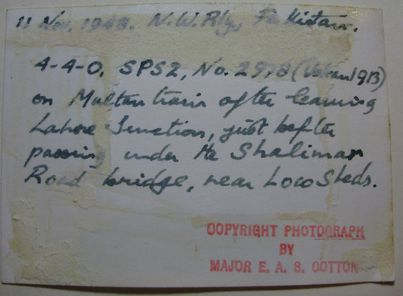 11 Nov. 1948. N.W. Rly, Pakistan.
4-4-0. SPS2, No. 2978 (Vulcan 1913)
on Multan train after leaving
Lahore Junction, just after
passing under the Shalimar
Road bridge, near Loco Sheds.
COPYRIGHT PHOTOGRAPH
BY
MAJOR E. A. S. COTTON